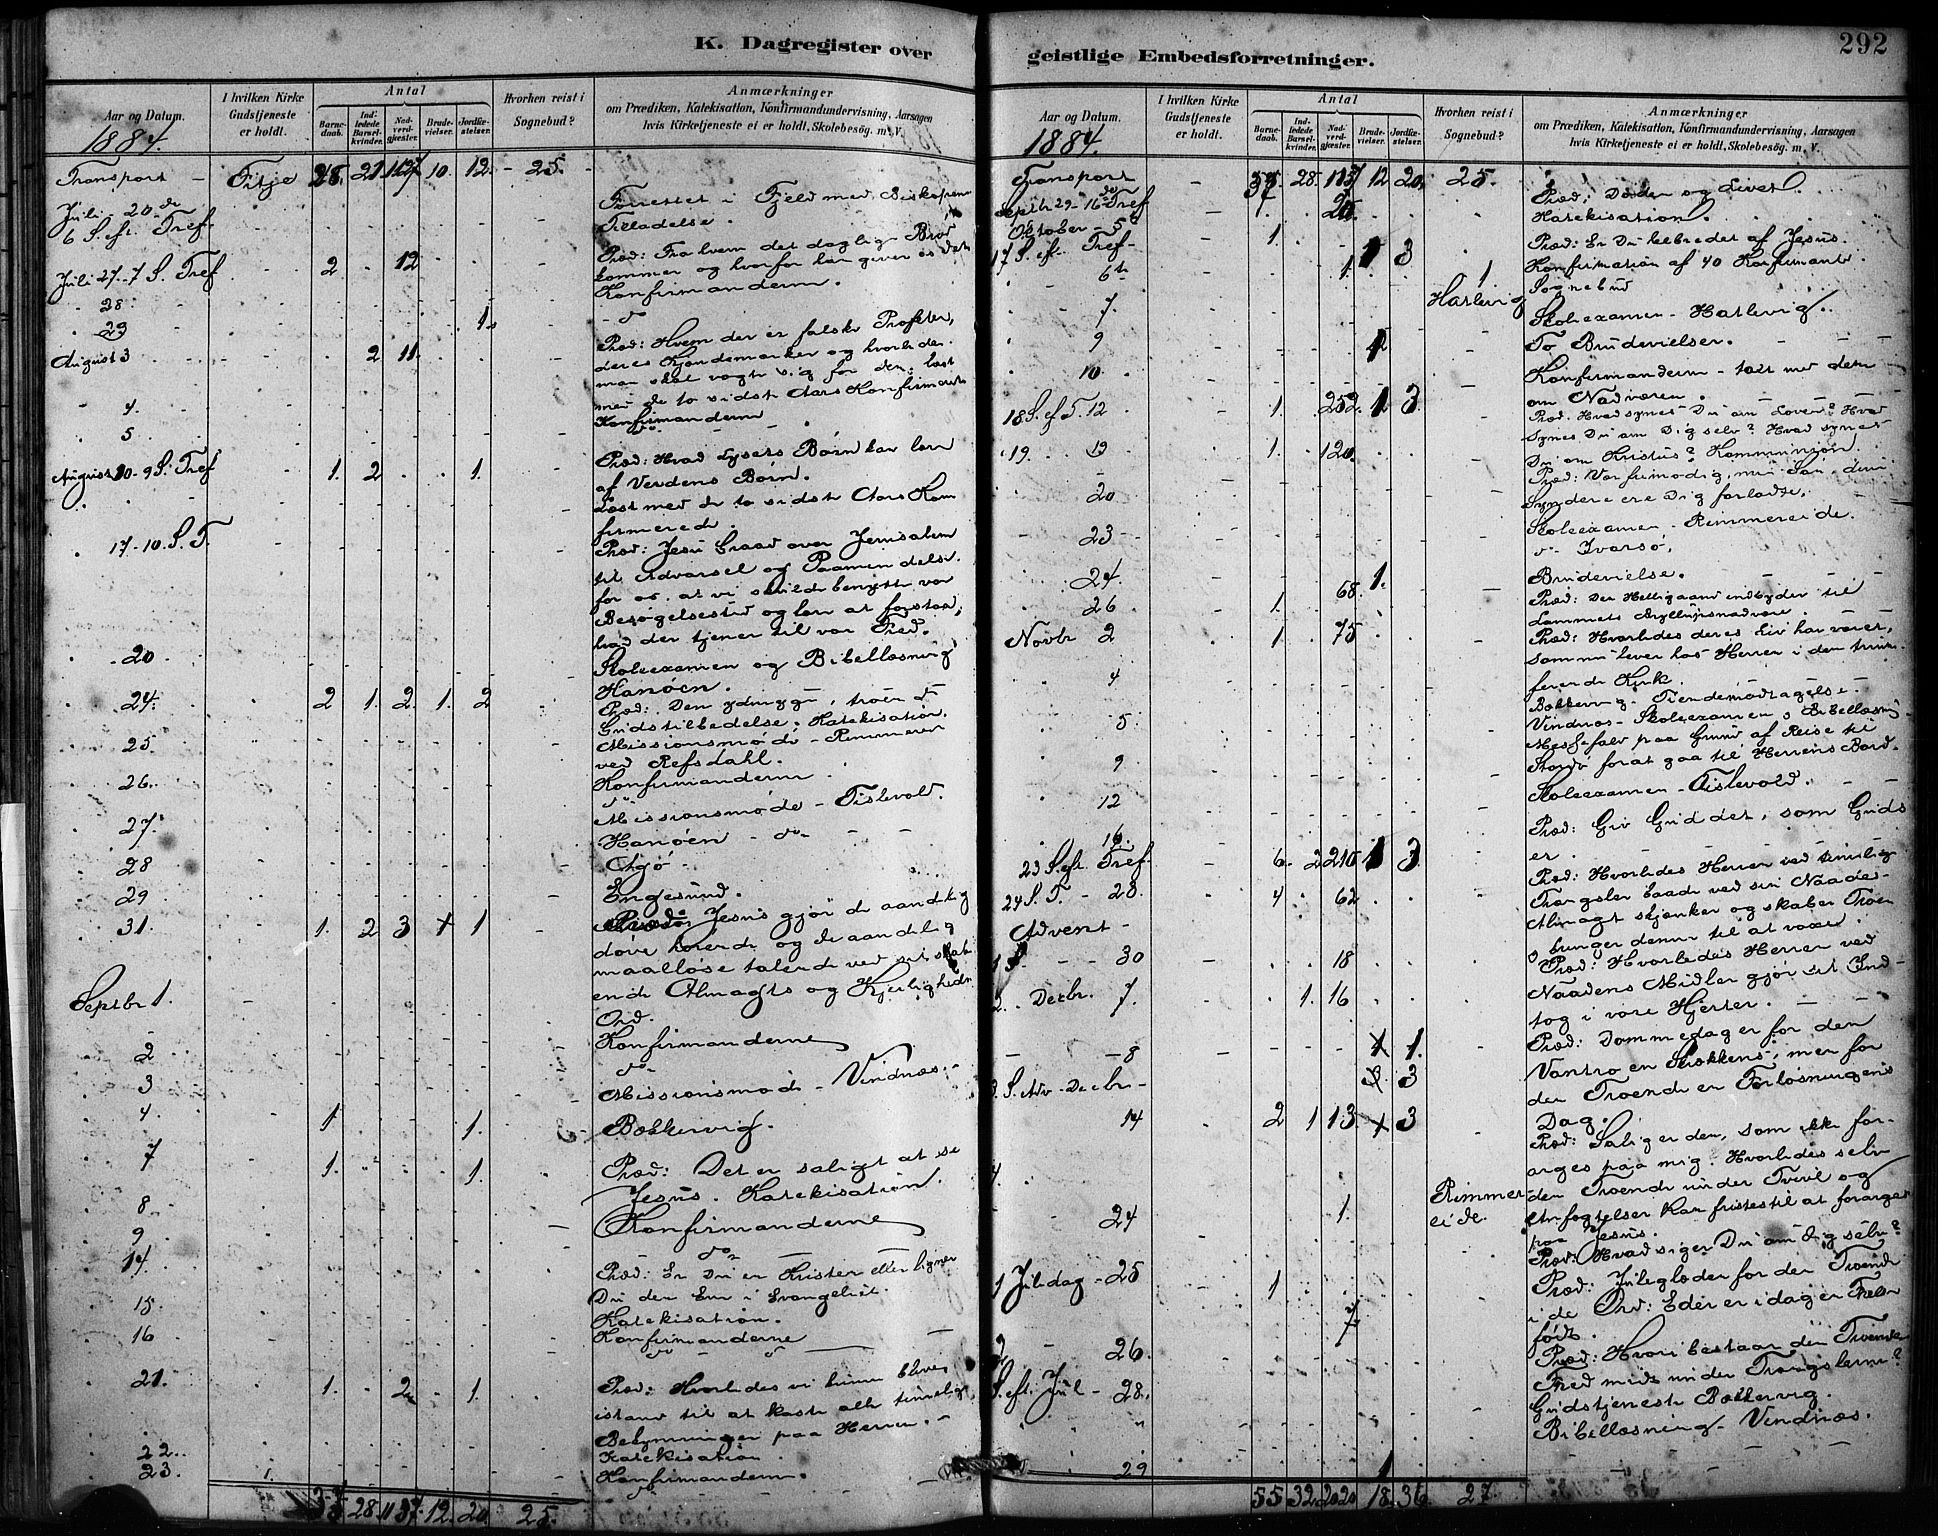 K. Dagregister over
geistlige Embedsforretninger.
292
Aar og Datum.
I hvilken Kirke Gudstjeneste er holdt.
Antal
Barnedaab.
Indledede Barselkvinder.
Nadverdgjester.
Brudevielser.
Jordfæstelser.
Hvorhen reist i Sognebud?
Anmærkninger
om Prædiken, Katekisation, Konfirmandundervisning, Aarsagen
hvis Kirketjeneste ei er holdt, Skolebesög. m. V.
1884.
Transport - Fitje 21 10. 12. - 25.
Juli 20de Forrettet i Fjeld med Biskopens
6 S. eft. Tref. Tilladelse.
Juli 27 - 7 S. Tref 2 12 Præd: Fra hvem det daglige Brød
kommer og hvorfor han giver os det
28 Konfirmanderne.
29 1. do
August 3 2 11. Præd: Hvem der er falske Profeter,
deres Kjendemærker og hvorledes
man skal vogte sig for dem; læst
med de to sidste Aars Konfirmerede
4. Konfirmanderne
5 do
August 10 - 9 S. Tref 1. 2 1. Præd: Hvad Lysets Børn kan lære
af Verdens Børn.
Læst med de to sidste Aars Kon
firmerede.
17 - 10. S. T. Præd: Jesu Graad over Jerusalem
til Advarsel og Paamindelse
for os, at vi skulde benytte vor
Besøgelsestid og lære at forstaa,
hvad der tjener til vor Fred.
20 Skoleexamen og Bibellæsning
Hanøen.
24. 2 1. 2. 1. 2 Præd: Den ydmyge, troende
Gudstilbedelse. Katekisation.
25. Missionsmøde - Rimmerei
ved Refsdahl.
26. Konfirmanderne.
do
27. Missionsmøde - Tislevold.
Hanøen - do
28 Agø -
29 Engesund.
31. 1. 2 3 1 Præd: Jesus gjør de aandelig
døve hørende og de aandelig
maalløse talende ved sit skab
ende Almagts og Kjerligheds
Septbr 1. Ord.
Konfirmanderne
2 do
3 Missionsmøde - Vindnæs -
4 1 1. Bækkervig.
7 1. 1. Præd: Det er saligt at se
Jesus. Katekisation.
8 Konfirmanderne
9 do
14. Præd: Er Du en Krister eller ligner
Du den Ene i Evangeliet.
15. Katekisation.
16 Konfirmanderne
do
21. 1. 2 1. Præd: Hvorledes vi kunne blive
istand til at kaste alle timelige
Bekymringer paa Herren. -
22. Katekisation.
23. Konfirmanderne.
28. 12. 20. 25.
Aar og Datum.
I hvilken Kirke Gudstjeneste er holdt.
Antal
Barnedaab.
Indledede Barselkvinder.
Nadverdgjester.
Brudevielser.
Jordfæstelser.
Hvorhen reist i Sognebud?
Anmærkninger
om Prædiken, Katekisation, Konfirmandundervisning, Aarsagen
hvis Kirketjeneste ei er holdt, Skolebesög. m. V.
1884.
Transport 28. 12 20 25.
Septbr 29 - 16de Tref Præd: Døden og Livet.
Katekisation.
Oktober - 5te
17 S. eft. Tref - 1. 3 Præd: Er Du helbredet af Jesus.
Konfirmation af 40 Konfirmander.
6te 1. Hatlevig Sognebud
7. Skoleexamen - Hatlevig.
9 To Brudevielser.
10. Konfirmanderne - talt med dem
om Nadværen.
18 S. ef T. 12 1. 252 3 Præd. Hvad synes Du om Loven? Hvad
synes Du om Dig selv? Hvad synes
Du om Kristus? Kommunion.
19. 19 1. 120. Præd: Vær frimodig, min Søn, dine
Synder ere Dig forladte.
20 Skoleexamen - Rimmereide.
23 do - Ivarsø.
24. 1. Brudevielse.
26 1. 68. Præd: Den Helligaand indbyder til
Lammets Bryllupsnadvere.
Novbr 2 1 75 Præd: Hvorledes deres Liv har været,
som nu lever hos Herren i den trium-
ferende Kirke.
4 Bækkervig - Tiendemodtagelse.
5 Vindnæs - Skoleexamen o Bibellæsning
9 Messefald paa Grund af Reise til
Stordø forat gaa til Herrens Bord.
12 Skoleexamen - Tislevold.
16. Præd: Giv Gud det, som Guds
23 S. eft. Tref. 6 2 3 er.
24 S. T. - 28. 4 62 Præd: Hvorledes Herren ved timelige
Trængsler baade ved sin Naades-
Almagt skjenker og skaber Troen
o bringer denne til at voxe.
Advent
30 18 Præd: Hvorledes Herren ved
Naadens Midler gjør sit Ind-
tog i vore Hjerter. -
2. Decbr. 7. 1. 16 Præd: Dommedag er for den
- 8 1. Vantro en Skrækkens, men for
3. S. Adv - Decbr - 3 den Troende er Forløsningens
14 2 1 13 3 Dag.
Præd: Salig er den, som ikke for-
arges paa mig. Hvorledes selv
4. den Troende under Tvivl og
24 1. Rimmereide. Anfegtelser kan fristes til at forarges
paa Jesus.
Præd: Hvad siger Du om dig selv?
1 Juledag - 25 1 Præd: Juleglæder for den Troende
i de Ord: Eder er i dag en Frelser
født.
2 - 26. Præd: Hvori bestaar den Troendes
Fred midt under Trængslerne?
S. eft. Jul - 28. Gudstjeneste Bækkervig.
" Bibellæsning - Vindnæs.
29 1
55 32 2020 18. 36. 27